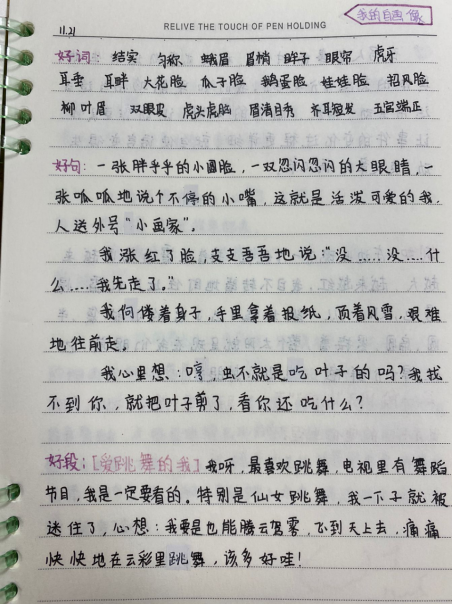 我的自画像
11.21
RELIVE THE TOUCH OF PEN HOLDING
好词: 结实 匀称 蛾眉 眉梢 眸子 眼帘 虎牙
耳垂 耳畔 大花脸 瓜子脸 鹅蛋脸 娃娃脸 招风脸
柳叶眉 双眼皮 虎头虎脑 眉清目秀 齐耳短发 五官端正
好句: 一张胖乎乎的小圆脸,一双忽闪忽闪的大眼睛,一
张呱呱地说个不停的小嘴,这就是活泼可爱的我,
人送外号“小画家”。
我涨红了脸,支支吾吾地说:“没……没……什
么……我先走了。”
我佝偻着身子,手里拿着报纸,顶着风雪,艰难
地往前走。
我心里想:哼,虫不就是吃叶子的吗?我找
不到你,就把叶子剪了,看你还吃什么?
好段:[爱跳舞的我] 我呀,最喜欢跳舞,电视里有舞蹈
节目,我是一定要看的。特别是仙女跳舞,我一下子就被
迷住了,心想:我要是也能腾云驾雾,飞到天上去,痛痛
快快地在云彩里跳舞,该多好哇!